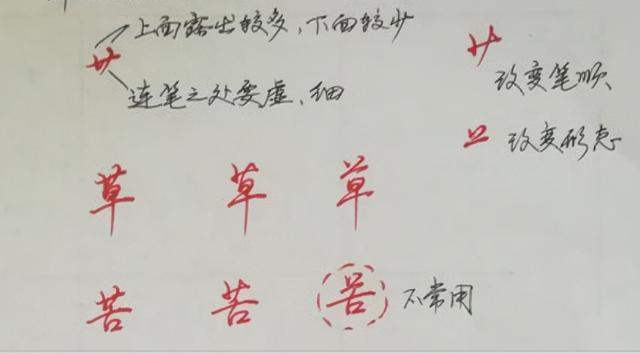 艹 上面露出较多,下面较少
连笔之处要虚、细
艹 改变笔顺
艹 改变形态
草 草 草
苦 苦 苦 不常用